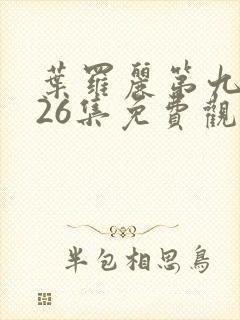 葉羅麗第九
26集免費觀
半包相思鳥